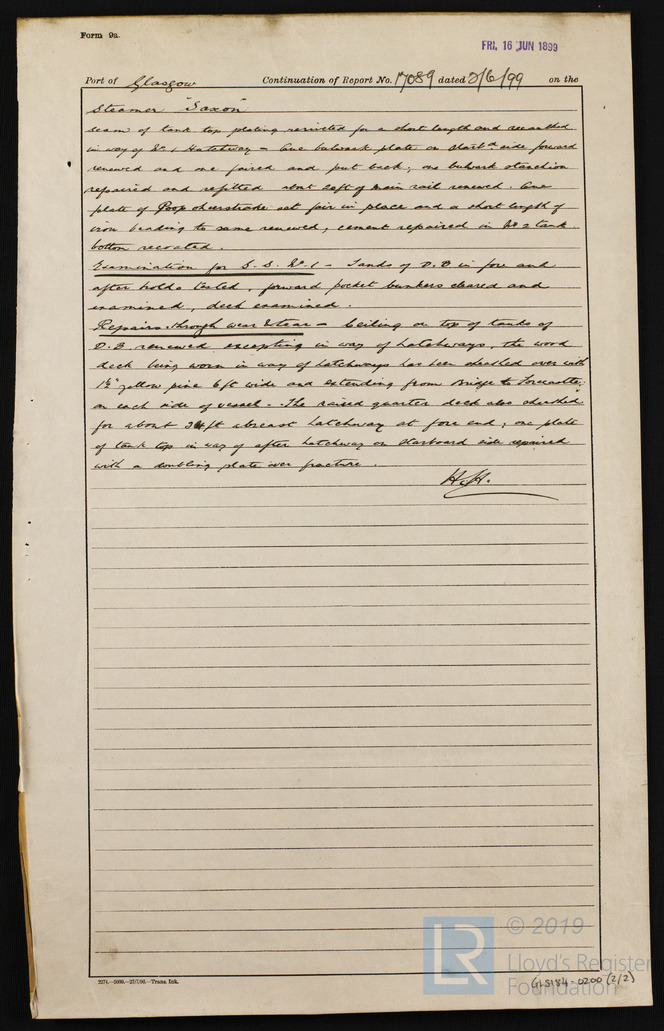 Form 9a.
FRI. 16 JUN 1899
Port of Glasgow Continuation of Report No. 17089 dated 2/6/99 on the
Steamer "Saxon"
seam of tank top plating rivitted for a short length and recaulked
in way of No. 1 Hatchway - One bulwark plate on Starbd side forward
renewed and one faired and put back, one bulwark stanchion
repaired and refitted about 20ft of main rail renewed. One
plate of Poop sheerstrake set fair in place and a short length of
iron beading to same renewed, cement repaired in No 2 tank
bottom recoated.
Examination for S. S. No. 1 - Tanks of D.B in fore and
after holds tested, forward pocket bunkers cleared and
examined, deck examined.
Repairs through wear & tear - Ceiling on top of tanks of
D.B. renewed excepting in way of hatchways, the wood
deck being worn in way of hatchways has been sheathed over with
1½" yellow pine 6ft wide and extending from Bridge to Forecastle,
on each side of vessel - The raised quarter deck also sheathed
for about 34ft abreast hatchway at fore end, one plate
of tank top in way of after hatchway on starboard side repaired
with a doubling plate over fracture.
H.H.
2274.-5000.-27/7/96.-Trans. Ink.
LR
© 2019
Lloyd's Register
Foundation
GLS184-0200 (2/2)